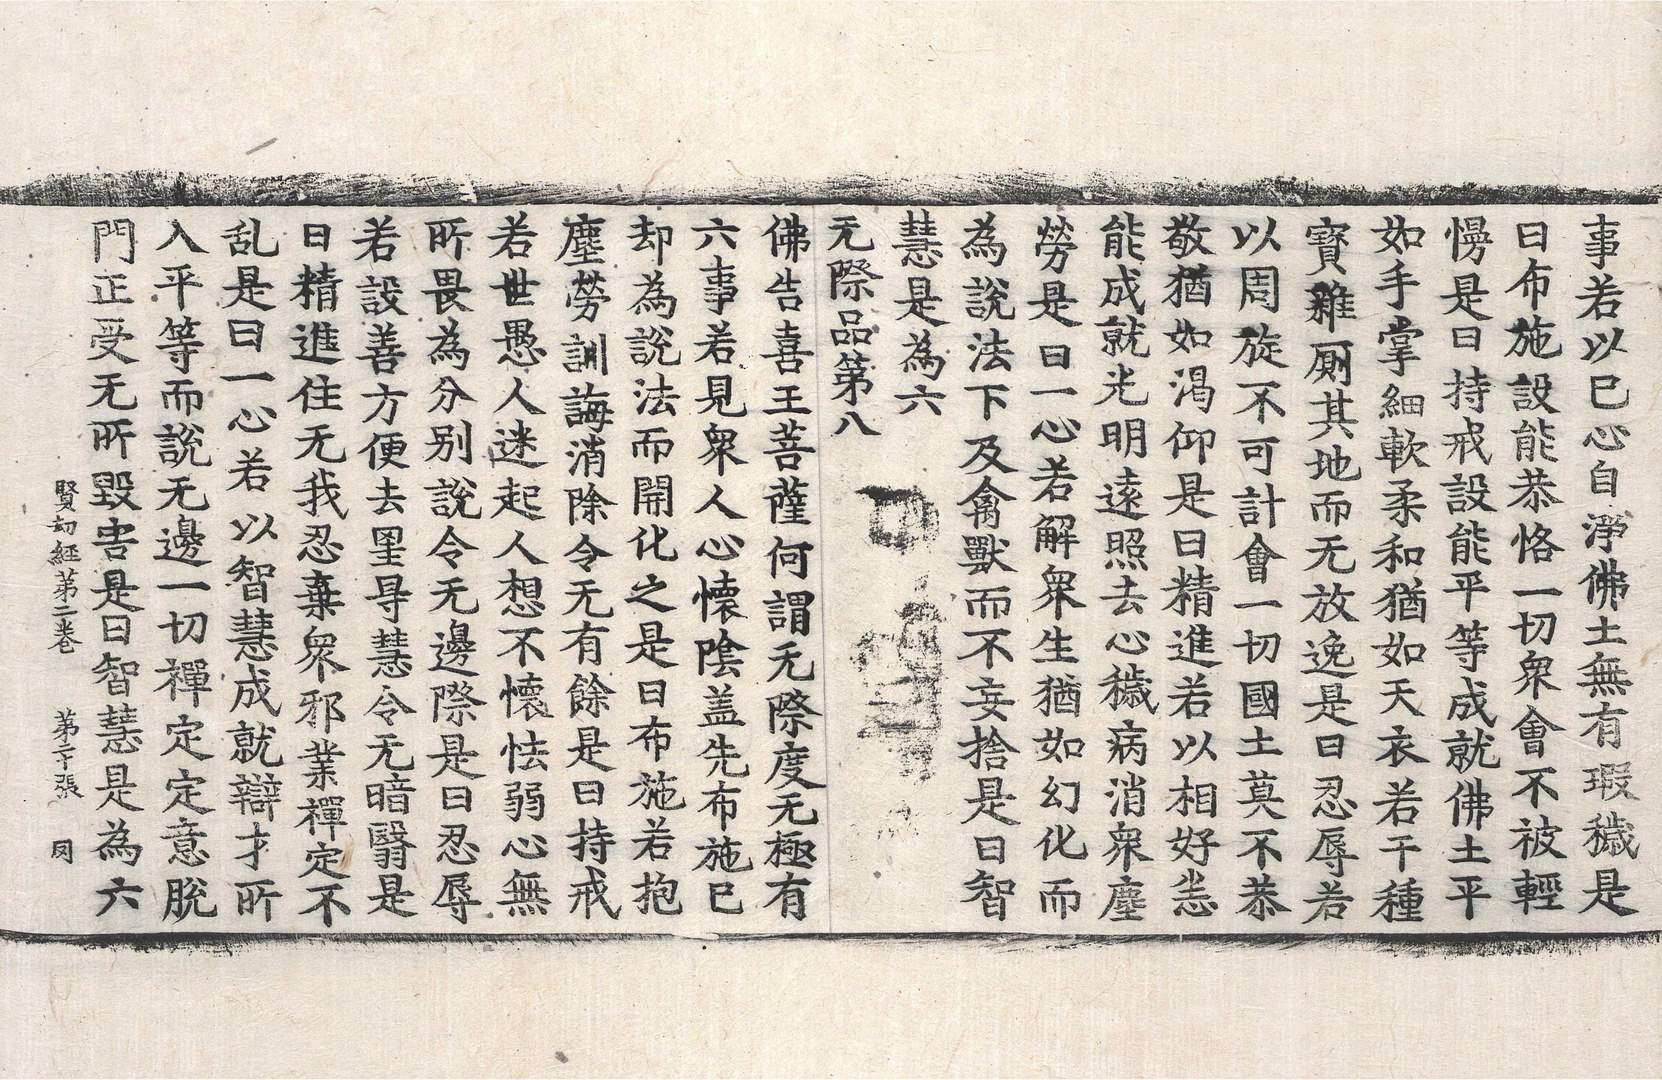 事若以已心自淨佛土無有瑕穢是
曰布施設能恭恪一切衆會不被輕
慢是曰持戒設能平等成就佛土平
如手掌細軟柔和猶如天衣若干種
寶雜厠其地而无放逸是曰忍辱若
以周旋不可計會一切國土莫不恭
敬猶如渴仰是曰精進若以相好恙
能成就光明遠照去心穢病消衆塵
勞是曰一心若解衆生猶如幻化而
為說法下及禽獸而不妄捨是曰智
慧是為六
无際品第八
佛告喜王菩薩何謂无際度无極有
六事若見衆人心懷陰盖先布施已
却為說法而開化之是曰布施若抱
塵勞訓誨消除令无有餘是曰持戒
若世愚人迷起人想不懷怯弱心無
所畏為分别說令无邊際是曰忍辱
若設善方便去罣㝵慧令无暗翳是
曰精進住无我忍棄衆邪業禪定不
乱是曰一心若以智慧成就辯才所
入平等而說无邊一切禪定定意脫
門正受无所毀害是曰智慧是為六
賢劫經第二卷 第二十張 㒰